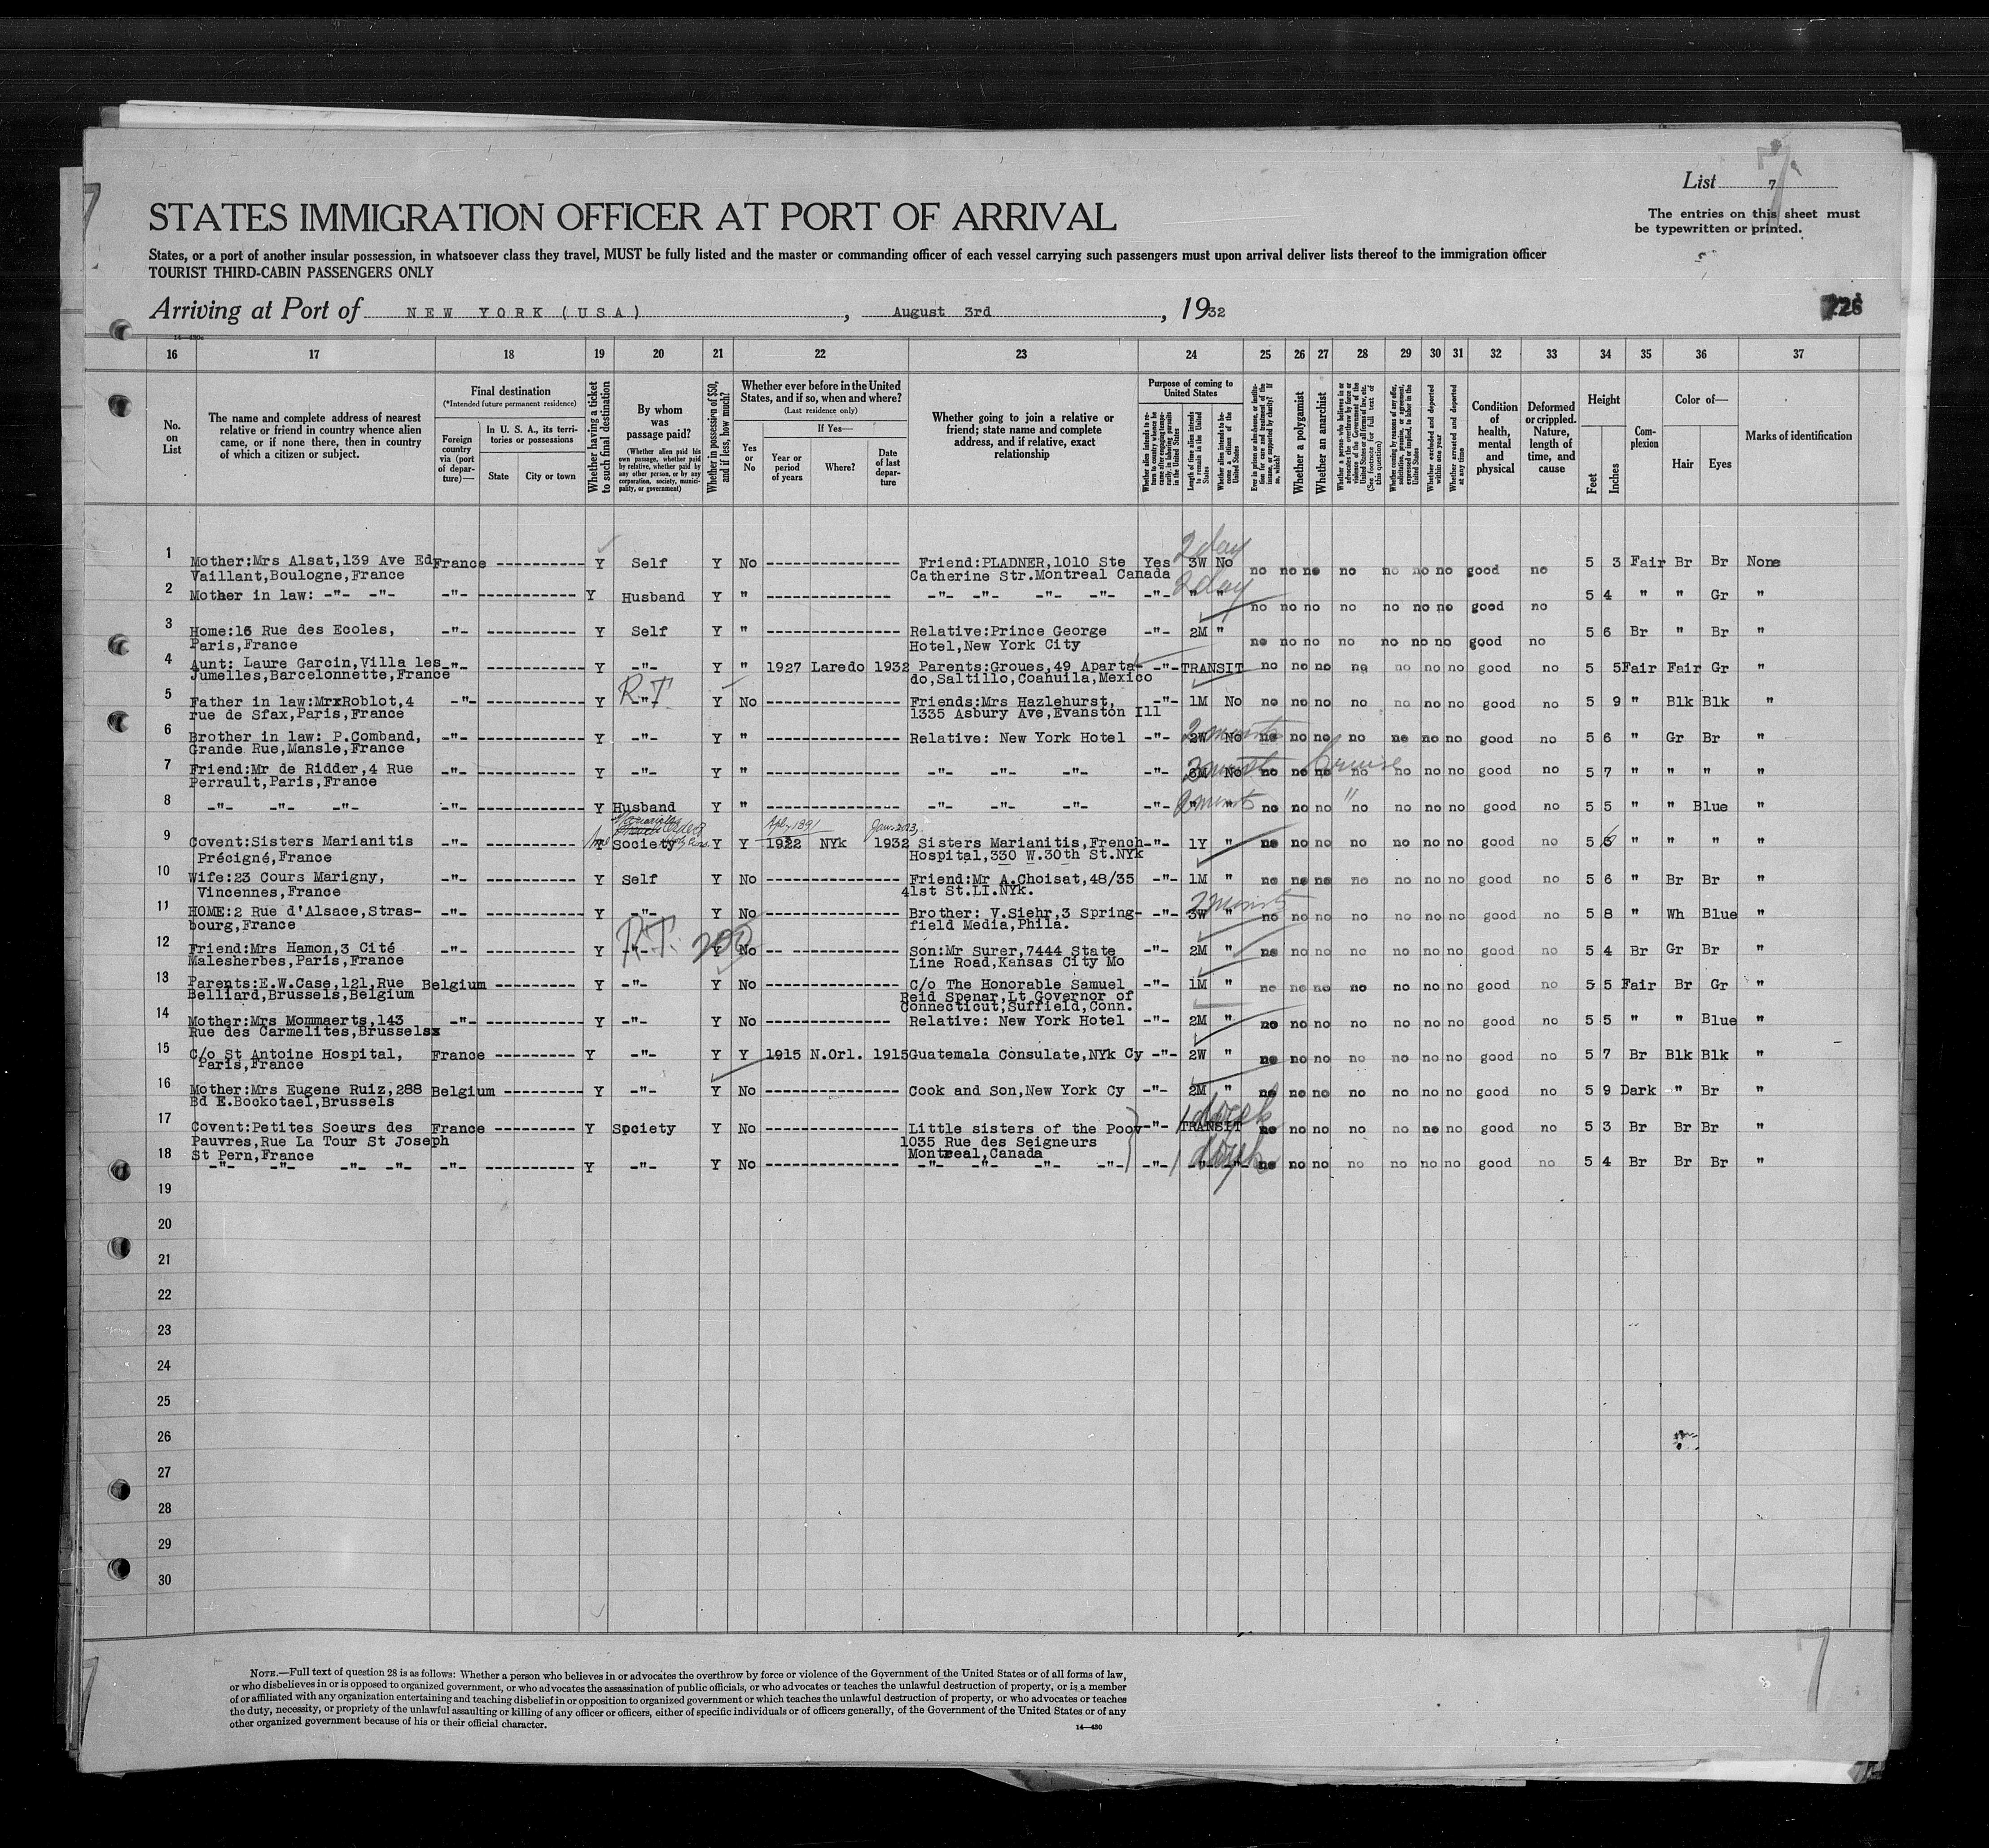 List 7
7
STATES IMMIGRATION OFFICER AT PORT OF ARRIVAL
The entries on this sheet must
be typewritten or printed.
States, or a port of another insular possession, in whatsoever class they travel, MUST be fully listed and the master or commanding officer of each vessel carrying such passengers must upon arrival deliver lists thereof to the immigration officer
TOURIST THIRD-CABIN PASSENGERS ONLY
Arriving at Port of NEW YORK (USA), August 3rd, 1932
226
16 17 18 19 20 21 22 23 24 25 26 27 28 29 30 31 32 33 34 35 36 37
No. on List
The name and complete address of nearest relative or friend in country whence alien came, or if none there, then in country of which a citizen or subject.
Final destination
(*Intended future permanent residence)
Foreign country via (port of departure)—
In U. S. A., its territories or possessions
State City or town
Whether having a ticket to such final destination
By whom was passage paid?
(Whether alien paid his own passage, whether paid by relative, whether paid by any other person, or by any corporation, society, municipality, or government)
Whether in possession of $50, and if less, how much?
Whether ever before in the United States, and if so, when and where?
(Last residence only)
Yes or No
If Yes—
Year or period of years Where? Date of last departure
Whether going to join a relative or friend; state name and complete address, and if relative, exact relationship
Purpose of coming to United States
Whether alien intends to return to country whence he came after engaging temporarily in laboring pursuits in the United States
Length of time alien intends to remain in the United States
Whether alien intends to become a citizen of the United States
Ever in prison or almshouse, or institution for care and treatment of the insane, or supported by charity? If so, which?
Whether a polygamist
Whether an anarchist
Whether a person who believes in or advocates the overthrow by force or violence of the Government of the United States or all forms of law, etc. (See footnote for full text of this question)
Whether coming by reasons of any offer, solicitation, promise, or agreement, expressed or implied, to labor in the United States
Whether excluded and deported within one year
Whether arrested and deported at any time
Condition of health, mental and physical
Deformed or crippled. Nature, length of time, and cause
Height
Feet Inches
Complexion
Color of—
Hair Eyes
Marks of identification
1 Mother:Mrs Alsat,139 Ave Ed France ----------- Y Self Y No ---------------- Friend:PLADNER,1010 Ste Yes 2 day 3W No no no no no no no no good no 5 3 Fair Br Br None
Vaillant,Boulogne,France Catherine Str.Montreal Canada
2 Mother in law: -"- -"- -"- ----------- Y Husband Y " ---------------- -"- -"- -"- -"- -"- 2 day " " no no no no no no no good no 5 4 " " Gr "
3 Home:16 Rue des Ecoles, -"- ----------- Y Self Y " ---------------- Relative:Prince George -"- 2M " no no no no no no no good no 5 6 Br " Br "
Paris,France Hotel,New York City
4 Aunt: Laure Garcin,Villa les -"- ----------- Y -"- Y " 1927 Laredo 1932 Parents:Groues,49 Aparta- -"- TRANSIT no no no no no no no good no 5 5 Fair Fair Gr "
Jumelles,Barcelonnette,France do,Saltillo,Coahuila,Mexico
R.T
5 Father in law:MrxRoblot,4 -"- ----------- Y -"- Y No ---------------- Friends:Mrs Hazlehurst, -"- 1M No no no no no no no no good no 5 9 " Blk Blk "
rue de Sfax,Paris,France 1335 Asbury Ave,Evanston Ill
6 Brother in law: P.Comband, -"- ----------- Y -"- Y " ---------------- Relative: New York Hotel -"- 2W No no no no no no no no good no 5 6 " Gr Br "
Grande Rue,Mansle,France
7 Friend:Mr de Ridder,4 Rue -"- ----------- Y -"- Y " ---------------- -"- -"- -"- -"- 6M No no no no no no no no good no 5 7 " " " "
Perrault,Paris,France
8 -"- -"- -"- -"- ----------- Y Husband Y " ---------------- -"- -"- -"- -"- " " no no no no no no no good no 5 5 " " Blue "
Apl, 1891
9 Covent:Sisters Marianitis -"- ----------- Y Society Y Y 1922 NYk 1932 Sisters Marianitis,French -"- 1Y " no no no no no no no good no 5 6 " " " "
Précigné,France Hospital,330 W.30th St.NYk
10 Wife:23 Cours Marigny, -"- ----------- Y Self Y No ---------------- Friend:Mr A.Choisat,48/35 -"- 1M " no no no no no no no good no 5 6 " Br Br "
Vincennes,France 41st St.LI.NYk.
11 HOME:2 Rue d'Alsace,Stras- -"- ----------- Y -"- Y No ---------------- Brother: V.Siehr,3 Spring- -"- 3W " no no no no no no no good no 5 8 " Wh Blue "
bourg,France field Media,Phila.
R.T. 200
12 Friend:Mrs Hamon,3 Cité -"- ----------- Y -"- Y No ---------------- Son:Mr Surer,7444 State -"- 2M " no no no no no no no good no 5 4 Br Gr Br "
Malesherbes,Paris,France Line Road,Kansas City Mo
13 Parents:E.W.Case,121,Rue Belgium ----------- Y -"- Y No ---------------- C/o The Honorable Samuel -"- 1M " no no no no no no no good no 5 5 Fair Br Gr "
Belliard,Brussels,Belgium Reid Spenar,Lt Governor of
Connecticut,Suffield,Conn.
14 Mother:Mrs Mommaerts,143 -"- ----------- Y -"- Y No ---------------- Relative: New York Hotel -"- 2M " no no no no no no no good no 5 5 " " Blue "
Rue des Carmelites,Brusselsx
15 C/o St Antoine Hospital, France ---------- Y -"- Y Y 1915 N.Orl. 1915 Guatemala Consulate,NYk Cy -"- 2W " no no no no no no no good no 5 7 Br Blk Blk "
Paris,France
16 Mother:Mrs Eugene Ruiz,288 Belgium ---------- Y -"- Y No ---------------- Cook and Son,New York Cy -"- 2M " no no no no no no no good no 5 9 Dark " Br "
Bd E.Bockotael,Brussels
17 Covent:Petites Soeurs des France ---------- Y Society Y No ---------------- Little sisters of the Poov -"- TRANSIT no no no no no no no good no 5 3 Br Br Br "
Pauvres,Rue La Tour St Joseph 1035 Rue des Seigneurs
St Pern,France Montreal,Canada
18 -"- -"- -"- -"- -"- ----------- Y -"- Y No ---------------- -"- -"- -"- -"- -"- -"- -"- no no no no no no no good no 5 4 Br Br Br "
19
20
21
22
23
24
25
26
27
28
29
30
NOTE.—Full text of question 28 is as follows: Whether a person who believes in or advocates the overthrow by force or violence of the Government of the United States or of all forms of law,
or who disbelieves in or is opposed to organized government, or who advocates the assassination of public officials, or who advocates or teaches the unlawful destruction of property, or is a member
of or affiliated with any organization entertaining and teaching disbelief in or opposition to organized government or which teaches the unlawful destruction of property, or who advocates or teaches
the duty, necessity, or propriety of the unlawful assaulting or killing of any officer or officers, either of specific individuals or of officers generally, of the Government of the United States or of any
other organized government because of his or their official character.
14—430
7